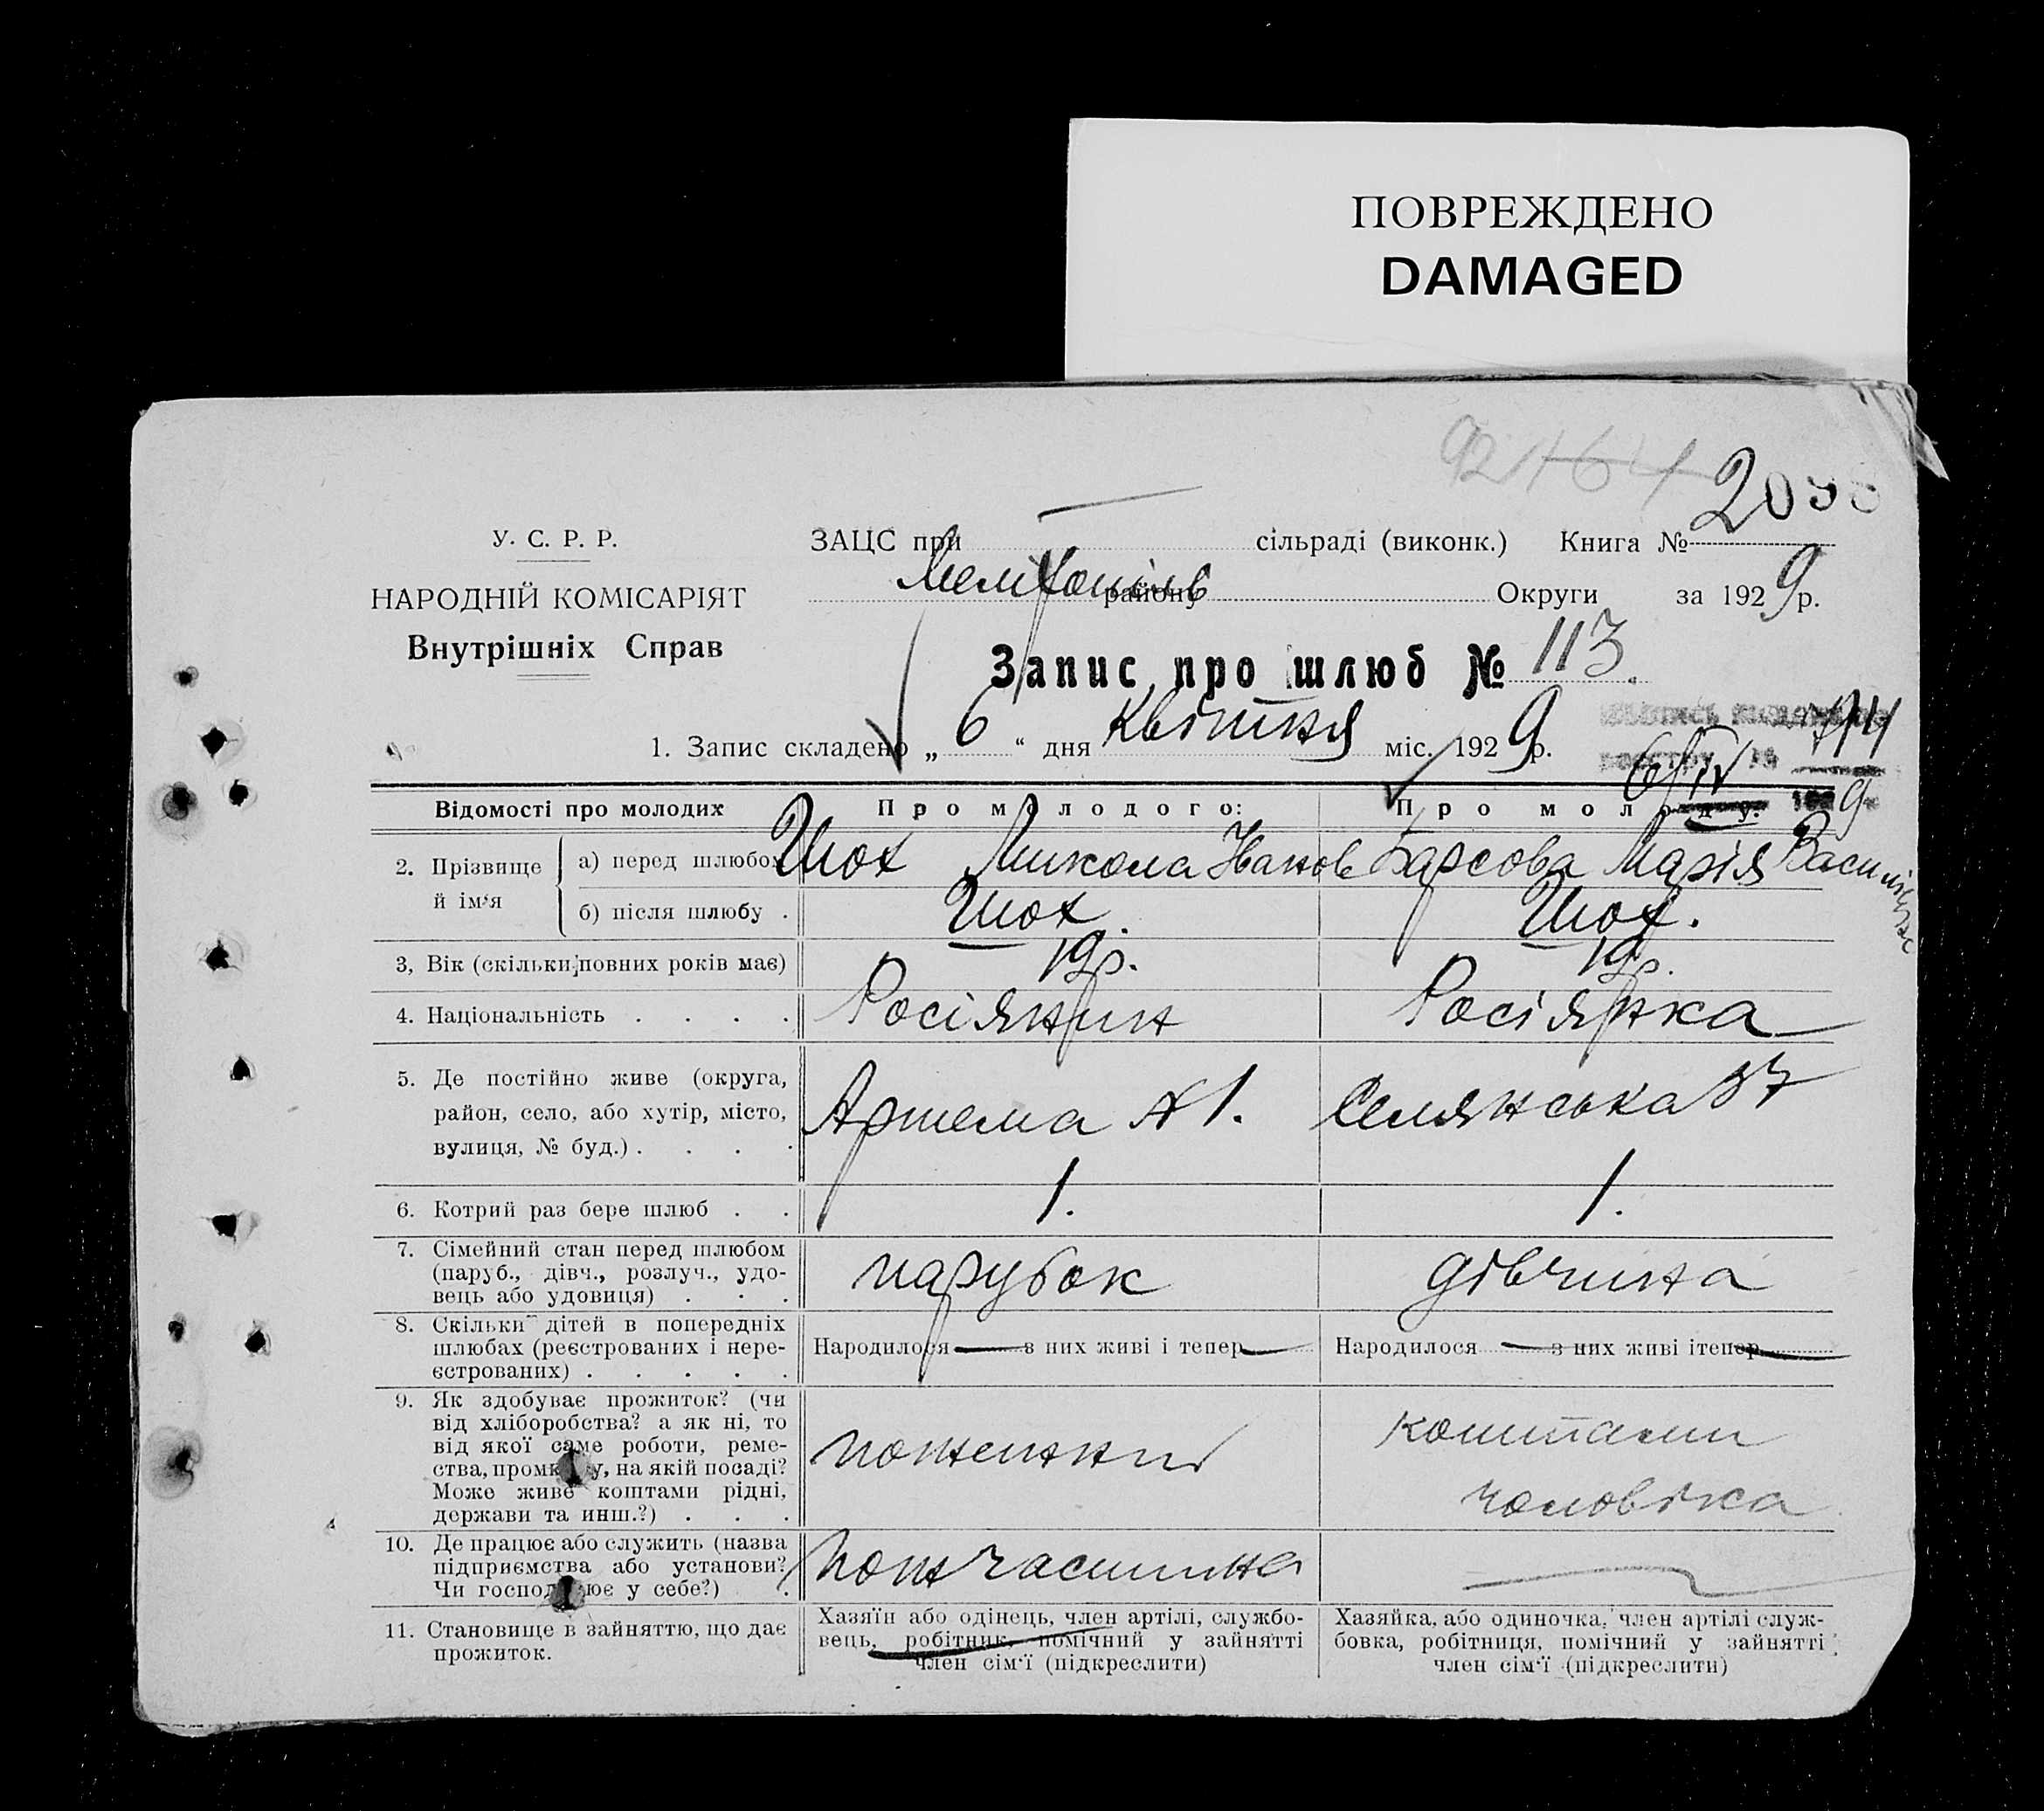 ПОВРЕЖДЕНО
DAMAGED
У. С. Р. Р.
НАРОДНІЙ КОМІСАРІЯТ
Внутрішніх Справ
ЗАЦС при сільраді (виконк.) Книга №
району Округи за 1929 р.
Запис про шлюб № 113.
1. Запис складено „ 6 “ дня Квітня міс. 1929 р.
Відомості про молодих
Про молодого:
Про молоду:
2. Прізвище й ім'я
а) перед шлюбом
Шох Микола Іванов
Барсова Марія
б) після шлюбу .
Шох.
Шох.
3, Вік (скільки повних років має)
19 р.
19 р.
4. Національність . . . .
Росіянин
Росіянка
5. Де постійно живе (округа,
район, село, або хутір, місто,
вулиця, № буд.) . . . .
Артема № 1.
Селянська 37
6. Котрий раз бере шлюб . .
1.
1.
7. Сімейний стан перед шлюбом
(паруб., дівч., розлуч., удо-
вець або удовиця) . . .
парубок
дівчина
8. Скільки дітей в попередніх
шлюбах (реєстрованих і нере-
єстрованих) . . . . .
Народилося — з них живі і тепер —
Народилося — з них живі ітепер —
9. Як здобуває прожиток? (чи
від хліборобства? а як ні, то
від якої саме роботи, реме-
ства, у, на якій посаді?
Може живе коштами рідні,
держави та инш.?) . . .
коштами
чоловіка
10. Де працює або служить (назва
підприємства або установи?
Чи у себе?) .
пожчастина
11. Становище в зайняттю, що дає
прожиток.
Хазяїн або одінець, член артілі, службо-
вець, робітник, помічний у зайнятті
член сім'ї (підкреслити)
Хазяйка, або одиночка, член артілі служ-
бовка, робітниця, помічний у зайнятті
член сім'ї (підкреслити)